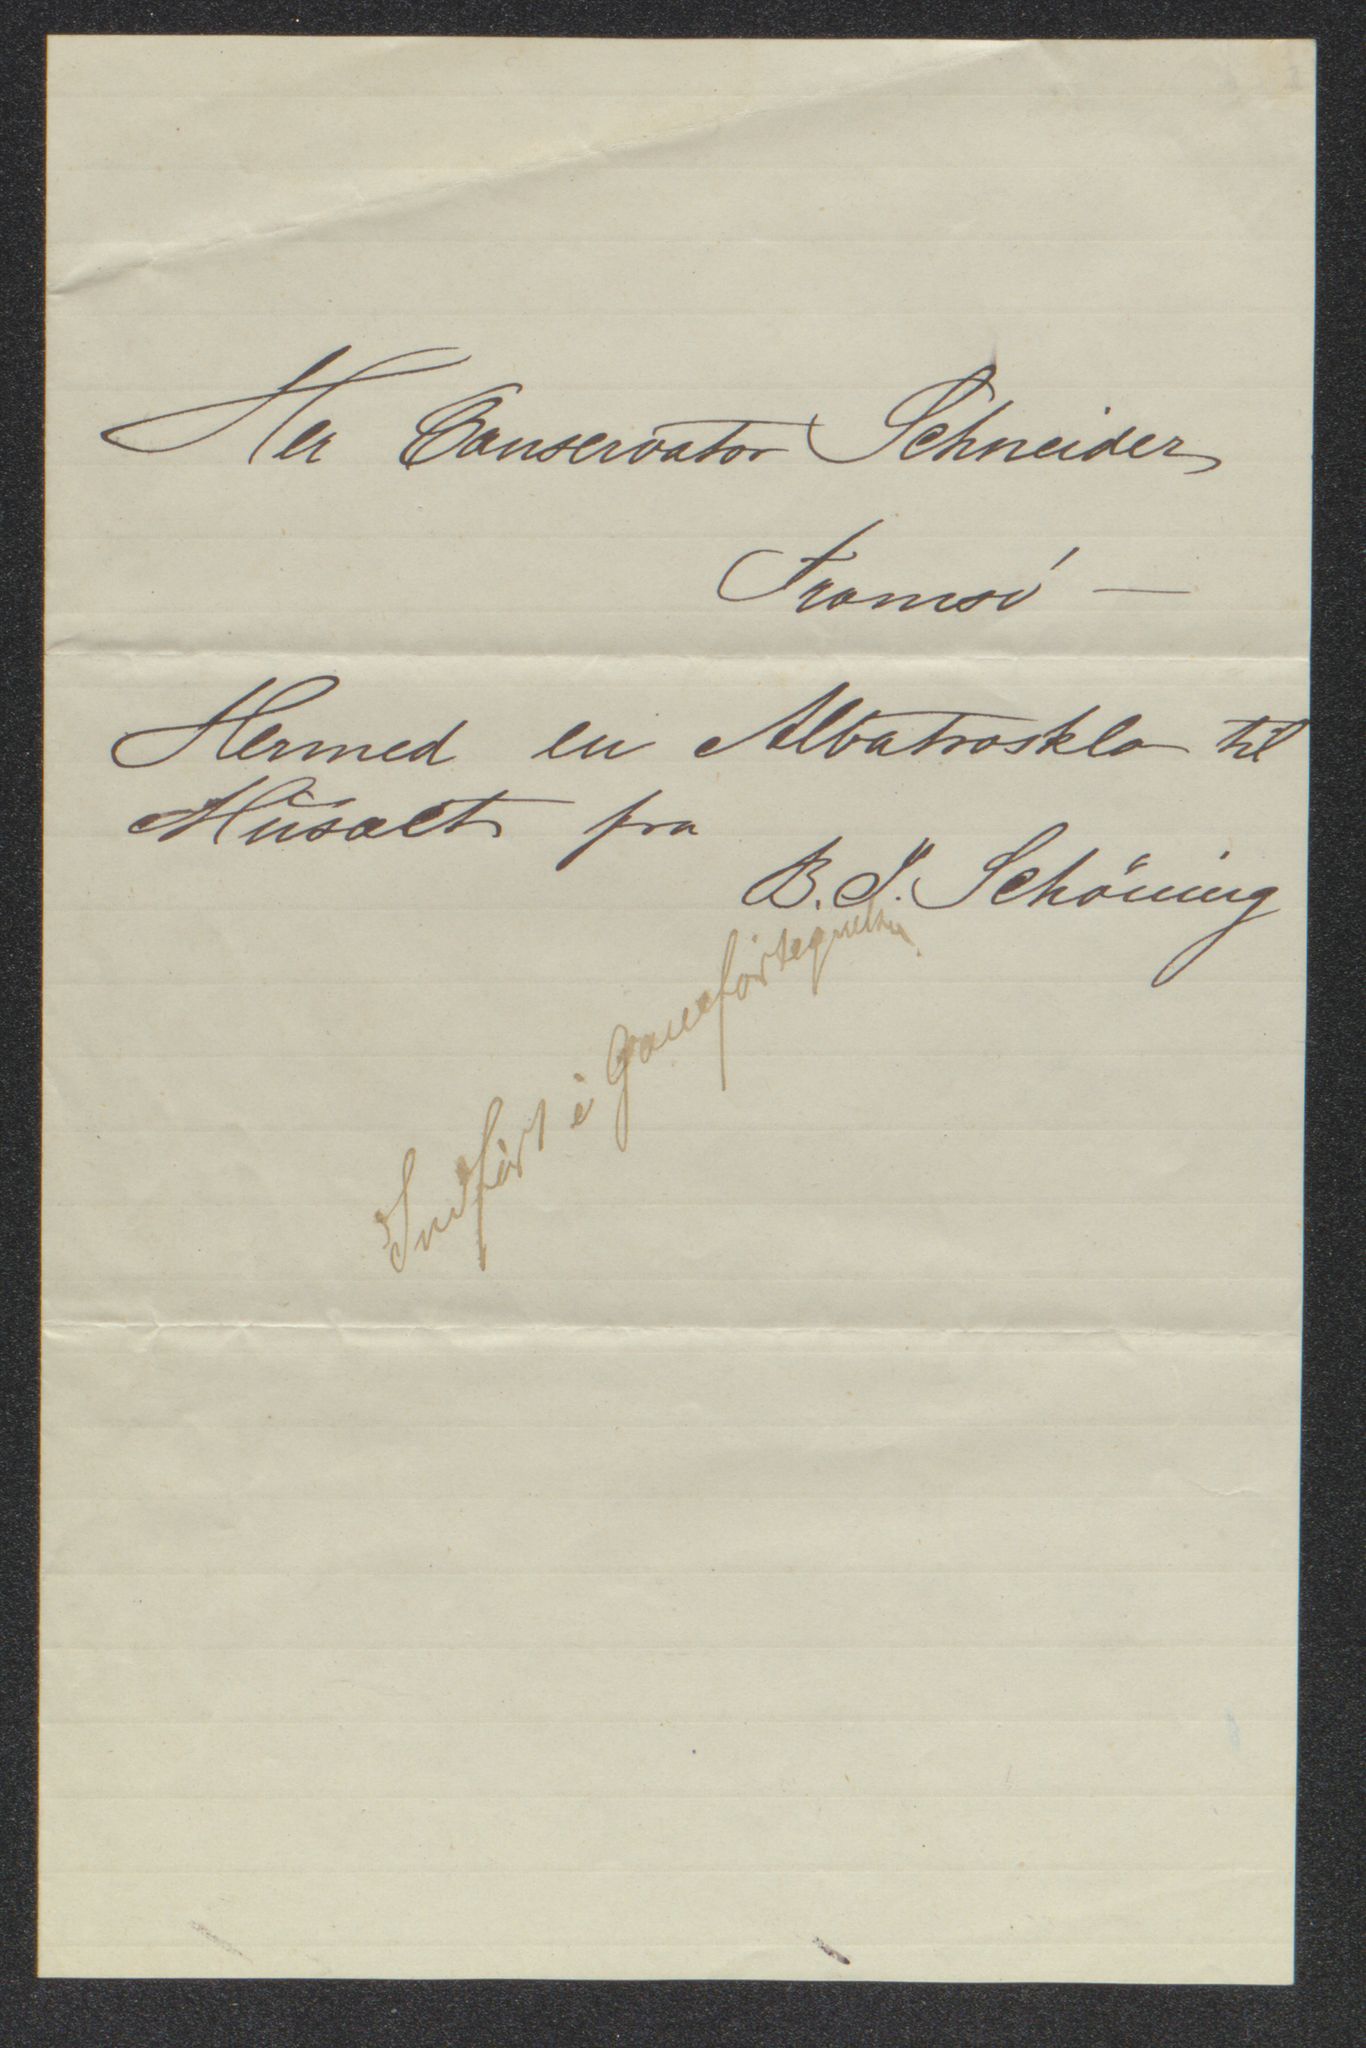 Her Conservator Schneider
Tromsö —
Hermed en Albatrosklo til
Musæet fra
B. J. Schöning
Indført i Gavefortegnelsen.